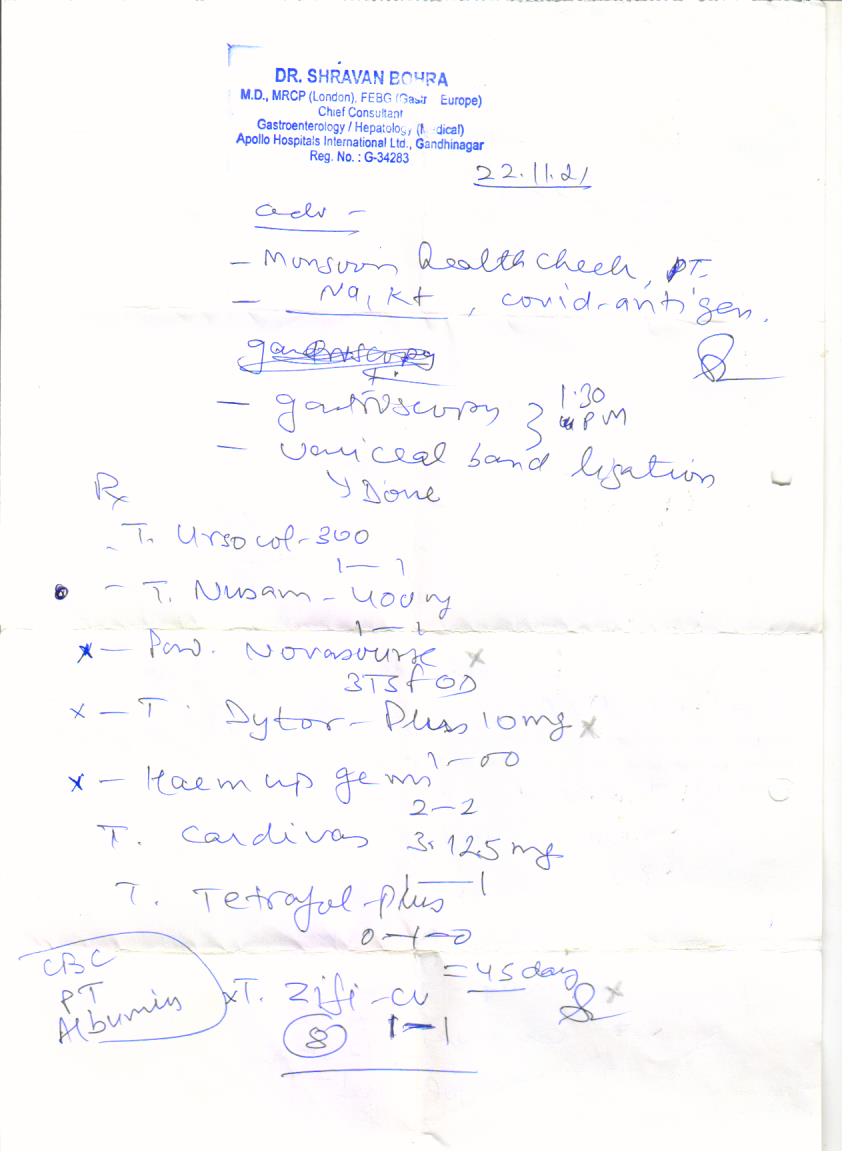 DR. SHRAVAN BOHRA
M.D., MRCP (London), FEBG (Gastr Europe)
Chief Consultant
Gastroenterology / Hepatology (M dical)
Apollo Hospitals International Ltd., Gandhinagar
Reg. No. : G-34283
22.11.21
adv -
- Monsoon Health Check, PT.
- Na, K+, covid-antigen.
gastroscopy
- gastroscopy } 1:30 PM
- variceal band ligation
↳ Done
Rx
- T. Ursocol-300
1 — 1
- T. Nusam - 400mg
1 — 1
x - Pow. Novasource x
3TSF OD
x - T. Dytor - Plus 10mg x
1-00
x - Haem up gems
2-2
T. Cardivas 3.125 mg
1 — 1
T. Tetrafol-plus
0-1-0
= 45 day
CBC
PT
Albumin
xT. Zifi-cv x
8 1-1